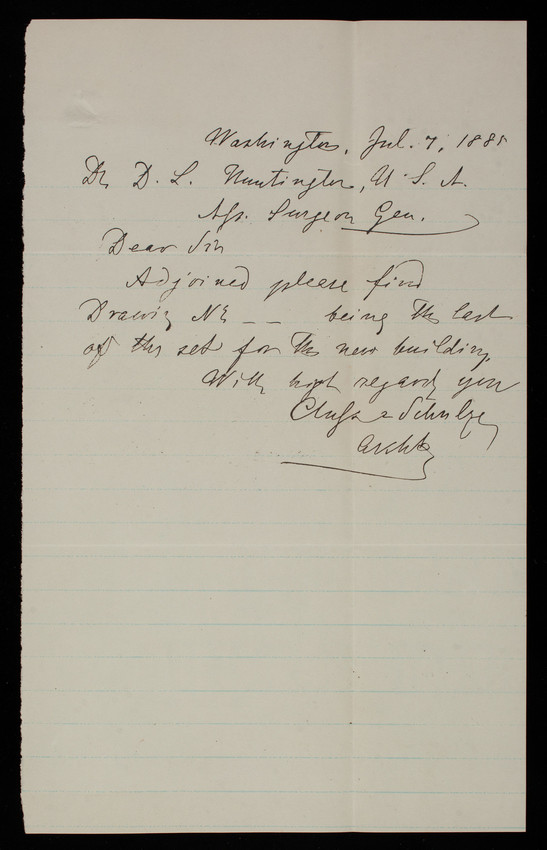 Washington, Jul. 7, 1885
Dr D. L. Huntington, U. S. A.
Ass. Surgeon Gen.
Dear Sir
Adjoined please find
Drawing No _ _ being the last
of the set for the new building.
With high regards your
Cluss & Schulze
Archts